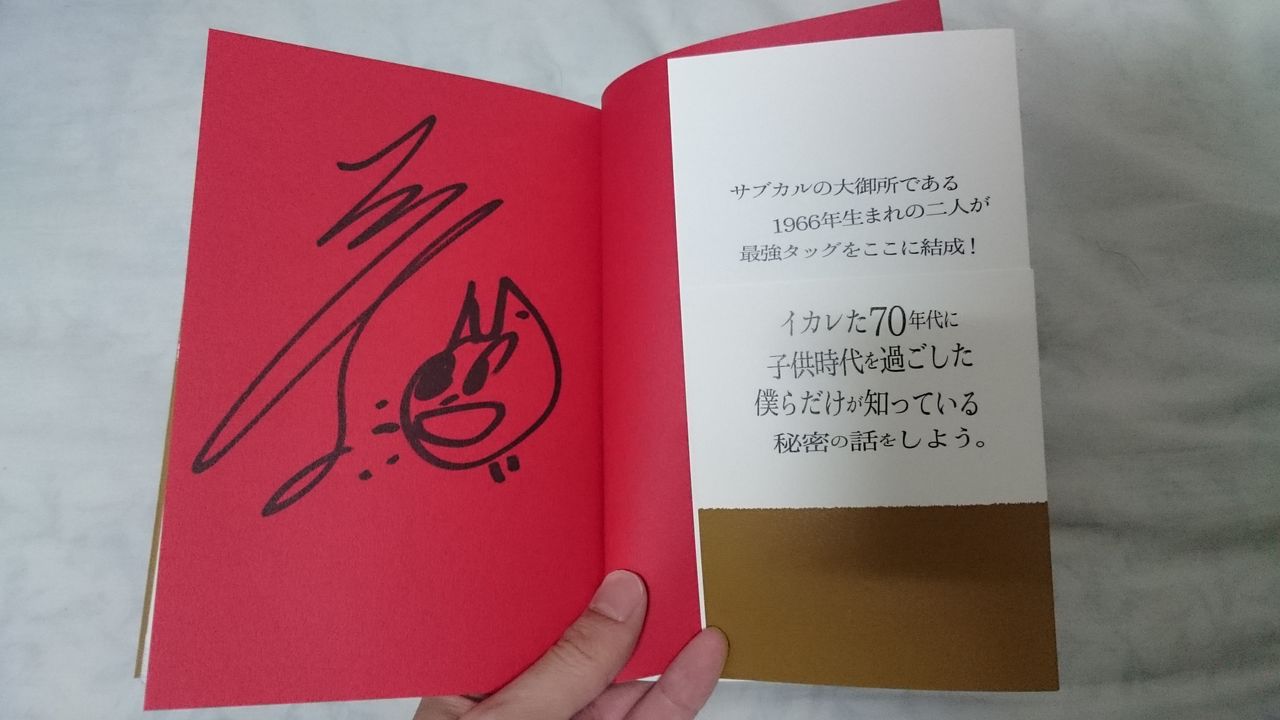 サブカルの大御所である
1966年生まれの二人が
最強タッグをここに結成！
イカレた70年代に
子供時代を過ごした
僕らだけが知っている
秘密の話をしよう。